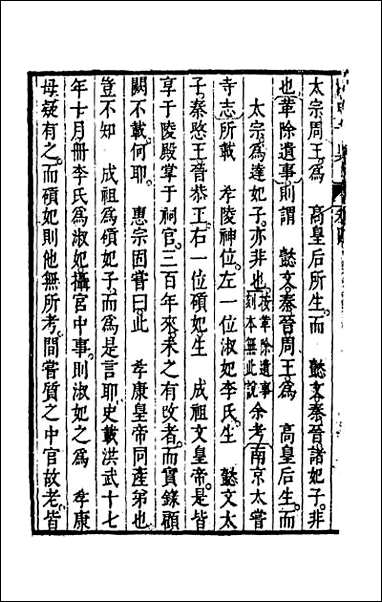 太宗周王爲　高皇后所生。而　懿文秦晉諸妃子。非
也。革除遺事則謂　懿文秦晉周王爲　高皇后生。而
太宗爲達妃子。亦非也。按革除遺事刻本無此說余考南京太嘗
寺志所載　孝陵神位。左一位淑妃李氏。生　懿文太
子。秦愍王晉恭王。右一位碩妃。生　成祖文皇帝。是皆
享于陵殿掌于祠官。三百年來。未之有改者。而實錄顧
闕不載。何耶。　惠宗固嘗曰。此　孝康皇帝同產弟也。
豈不知　成祖爲碩妃子。而爲是言耶。史載洪武十七
年十月冊李氏爲淑妃。攝宮中事。則淑妃之爲　孝康
母疑有之。而碩妃則他無所考。間嘗質之中官故老。皆